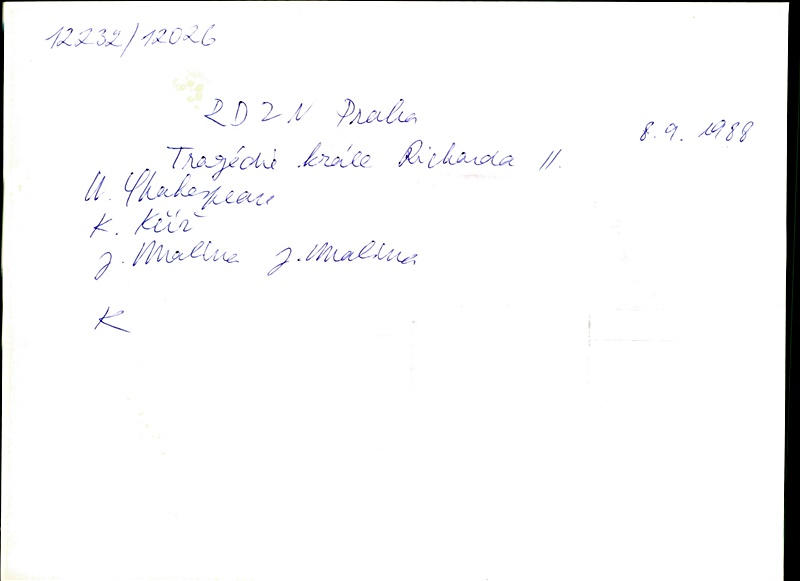 12232/12026
RDZN Praha
8.9. 1988
Tragédie krále Richarda II.
W. Shakespeare
K. Kříž
J. Malina J. Malina
K